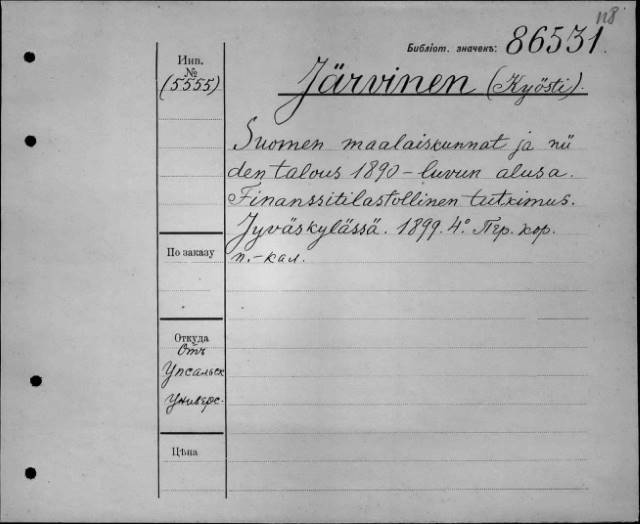 118
Библіот. значекъ: 86531.
Инв.
№
(5555)
Järvinen (Kyösti).
Suomen maalaiskunnat ja nii
den talous 1890-luvun alusa.
Finanssitilastollinen tutkimus.
Jyväskylässä. 1899. 4°. Пер. кор.
п.-кал.
По заказу
Откуда
Отъ
Упсальск
Универс.
Цѣна